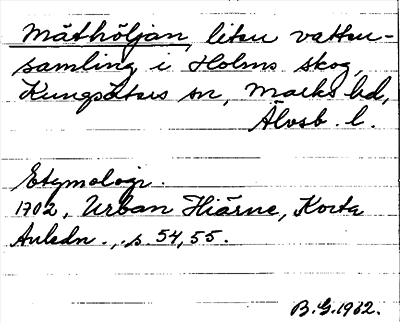 Mäthöljan, liten vatten-
samling i Holms skog,
Kungsäters sn, Marks hd,
Älvsb. l.
Etymologi.
1702, Urban Hiärne, Korta
Anledn., s. 54, 55.
B.G. 1932.